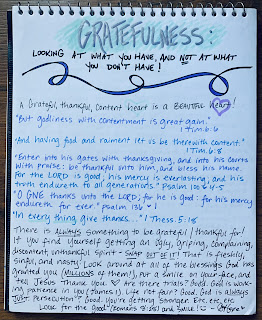 GRATEFULNESS:
LOOKING AT WHAT YOU HAVE, AND NOT AT WHAT
YOU DON'T HAVE!
A Grateful, thankful, content heart is a BEAUTIFUL heart!
"But godliness with contentment is great gain."
1 Tim. 6:6
"And having food and raiment let us be therewith content."
1 Tim. 6:8
"Enter into his gates with thanksgiving, and into his courts
with praise: be thankful unto him, and bless his name.
For the LORD is good; his mercy is everlasting; and his
truth endureth to all generations." Psalm 100:4-5
"O GIVE thanks unto the LORD; for he is good: for his mercy
endureth for ever." Psalm 136:1
"In every thing give thanks..." 1 Thess. 5:18
There is ALWAYS something to be grateful/thankful for!
If you find yourself getting an ugly, griping, complaining,
discontent, unthankful spirit - SNAP OUT OF IT! That is fleshly,
sinful, and nasty! Look around at all of the blessings God has
granted you (MILLIONS of them!), put a smile on your face, and
tell Jesus Thank You. Are there trials? Good. God is work-
ing patience in you (James 1). Life not fair? Good. God is ALWAYS
JUST. Persecution? Good. You're getting stronger. Etc, etc, etc.
Look for the good (Romans 8:28) and smile!